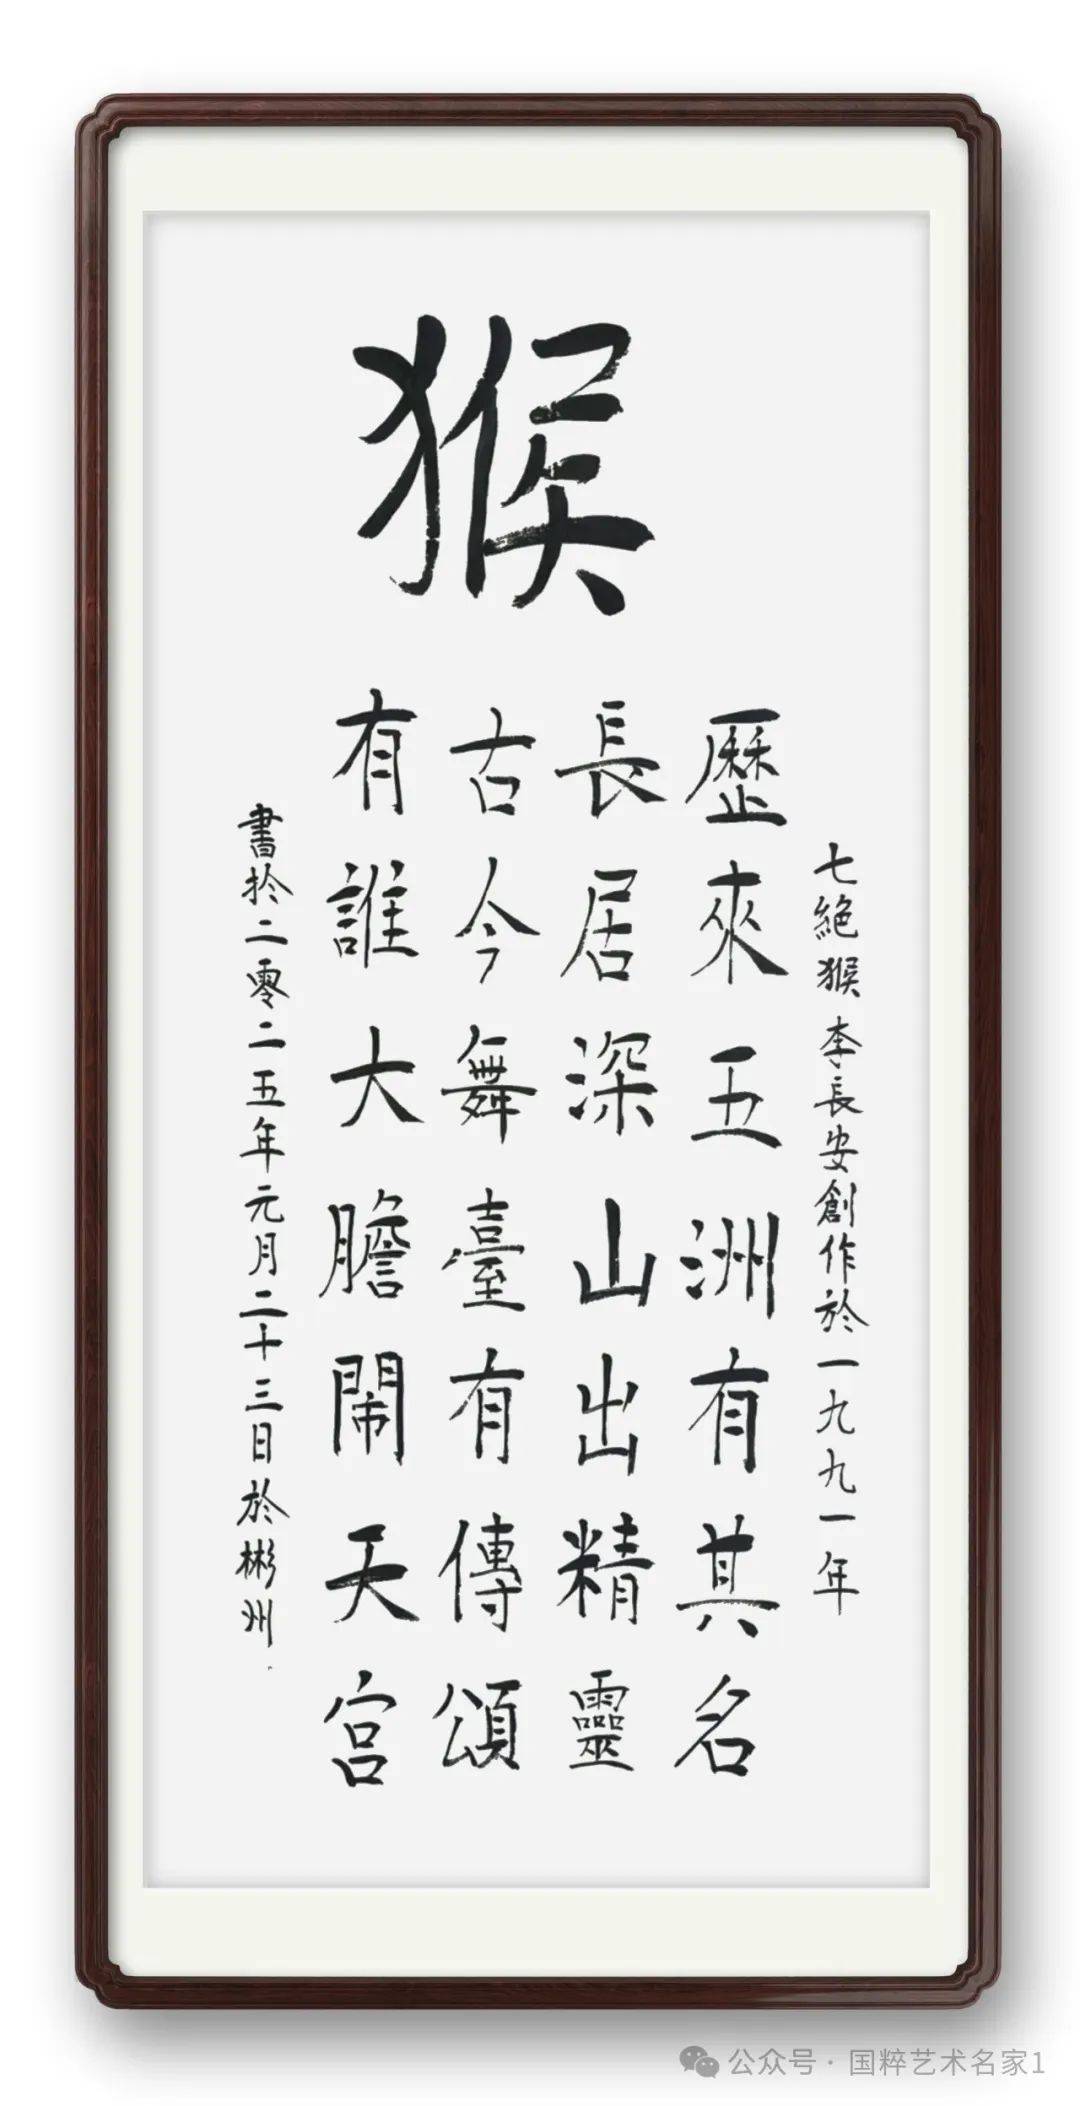 猴
七絶猴 李長安創作於一九九一年
歷來五洲有其名
長居深山出精靈
古今舞臺有傳頌
有誰大膽鬧天宫
書於二零二五年元月二十三日於彬州
公众号·国粹艺术名家1